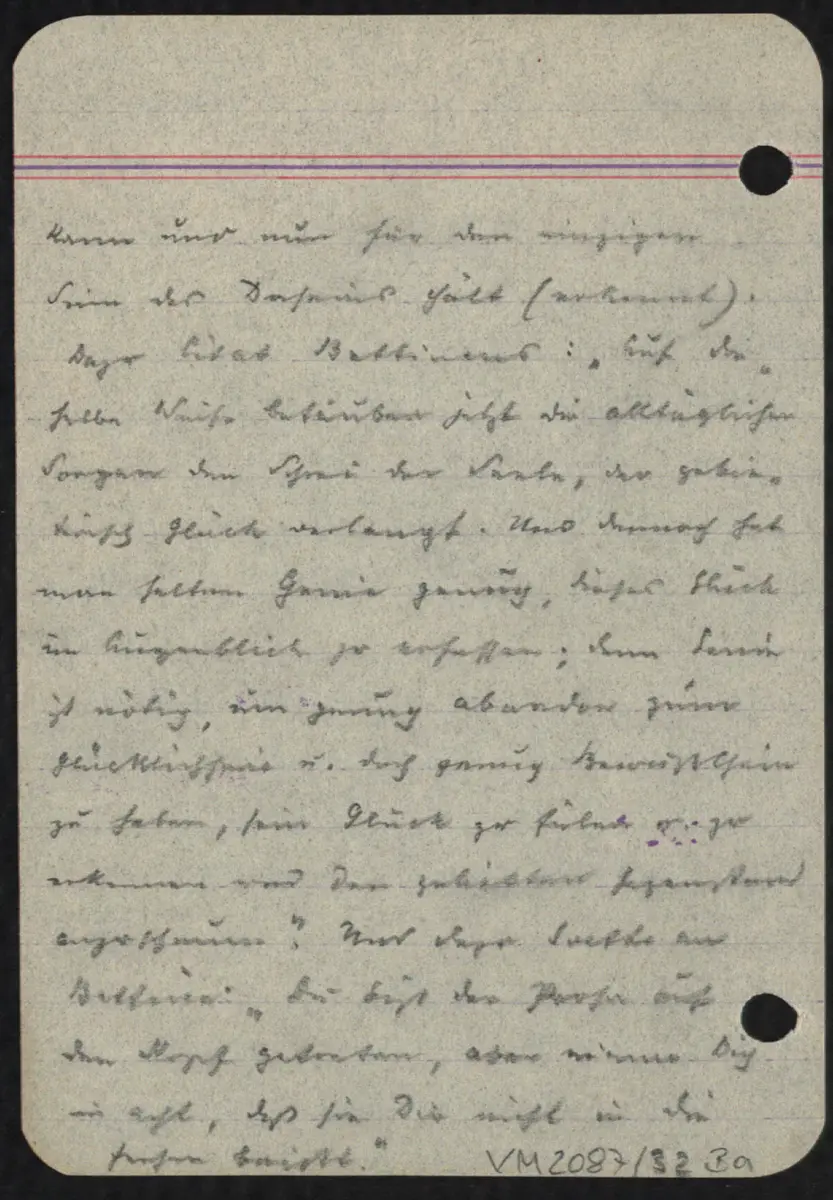 kann und nun für den einzigen
Sinn des Daseins hält (erkennt).
Dazu Citat Bettinens: „Auf die„
selbe Weise betäuben jetzt die alltäglichen
Sorgen den Schrei der Seele, der gebie„
terisch Glück verlangt. Und dennoch hat
man selten Genie genug, dieses Glück
im Augenblick zu erfassen; denn Genie
ist nötig, um genug abandon zum
Glücklichsein u. doch genug Bewußtsein
zu haben, sein Glück zu fühlen u. zu
erkennen und den geliebten Gegenstand
anzuschauen“. Und dazu Goethe an
Bettina: „Du bist der Prosa auf
den Kopf getreten, aber nimm Dich
in acht, daß sie Dir nicht in die
Fersen beißt.“
VM2087/32 Ba